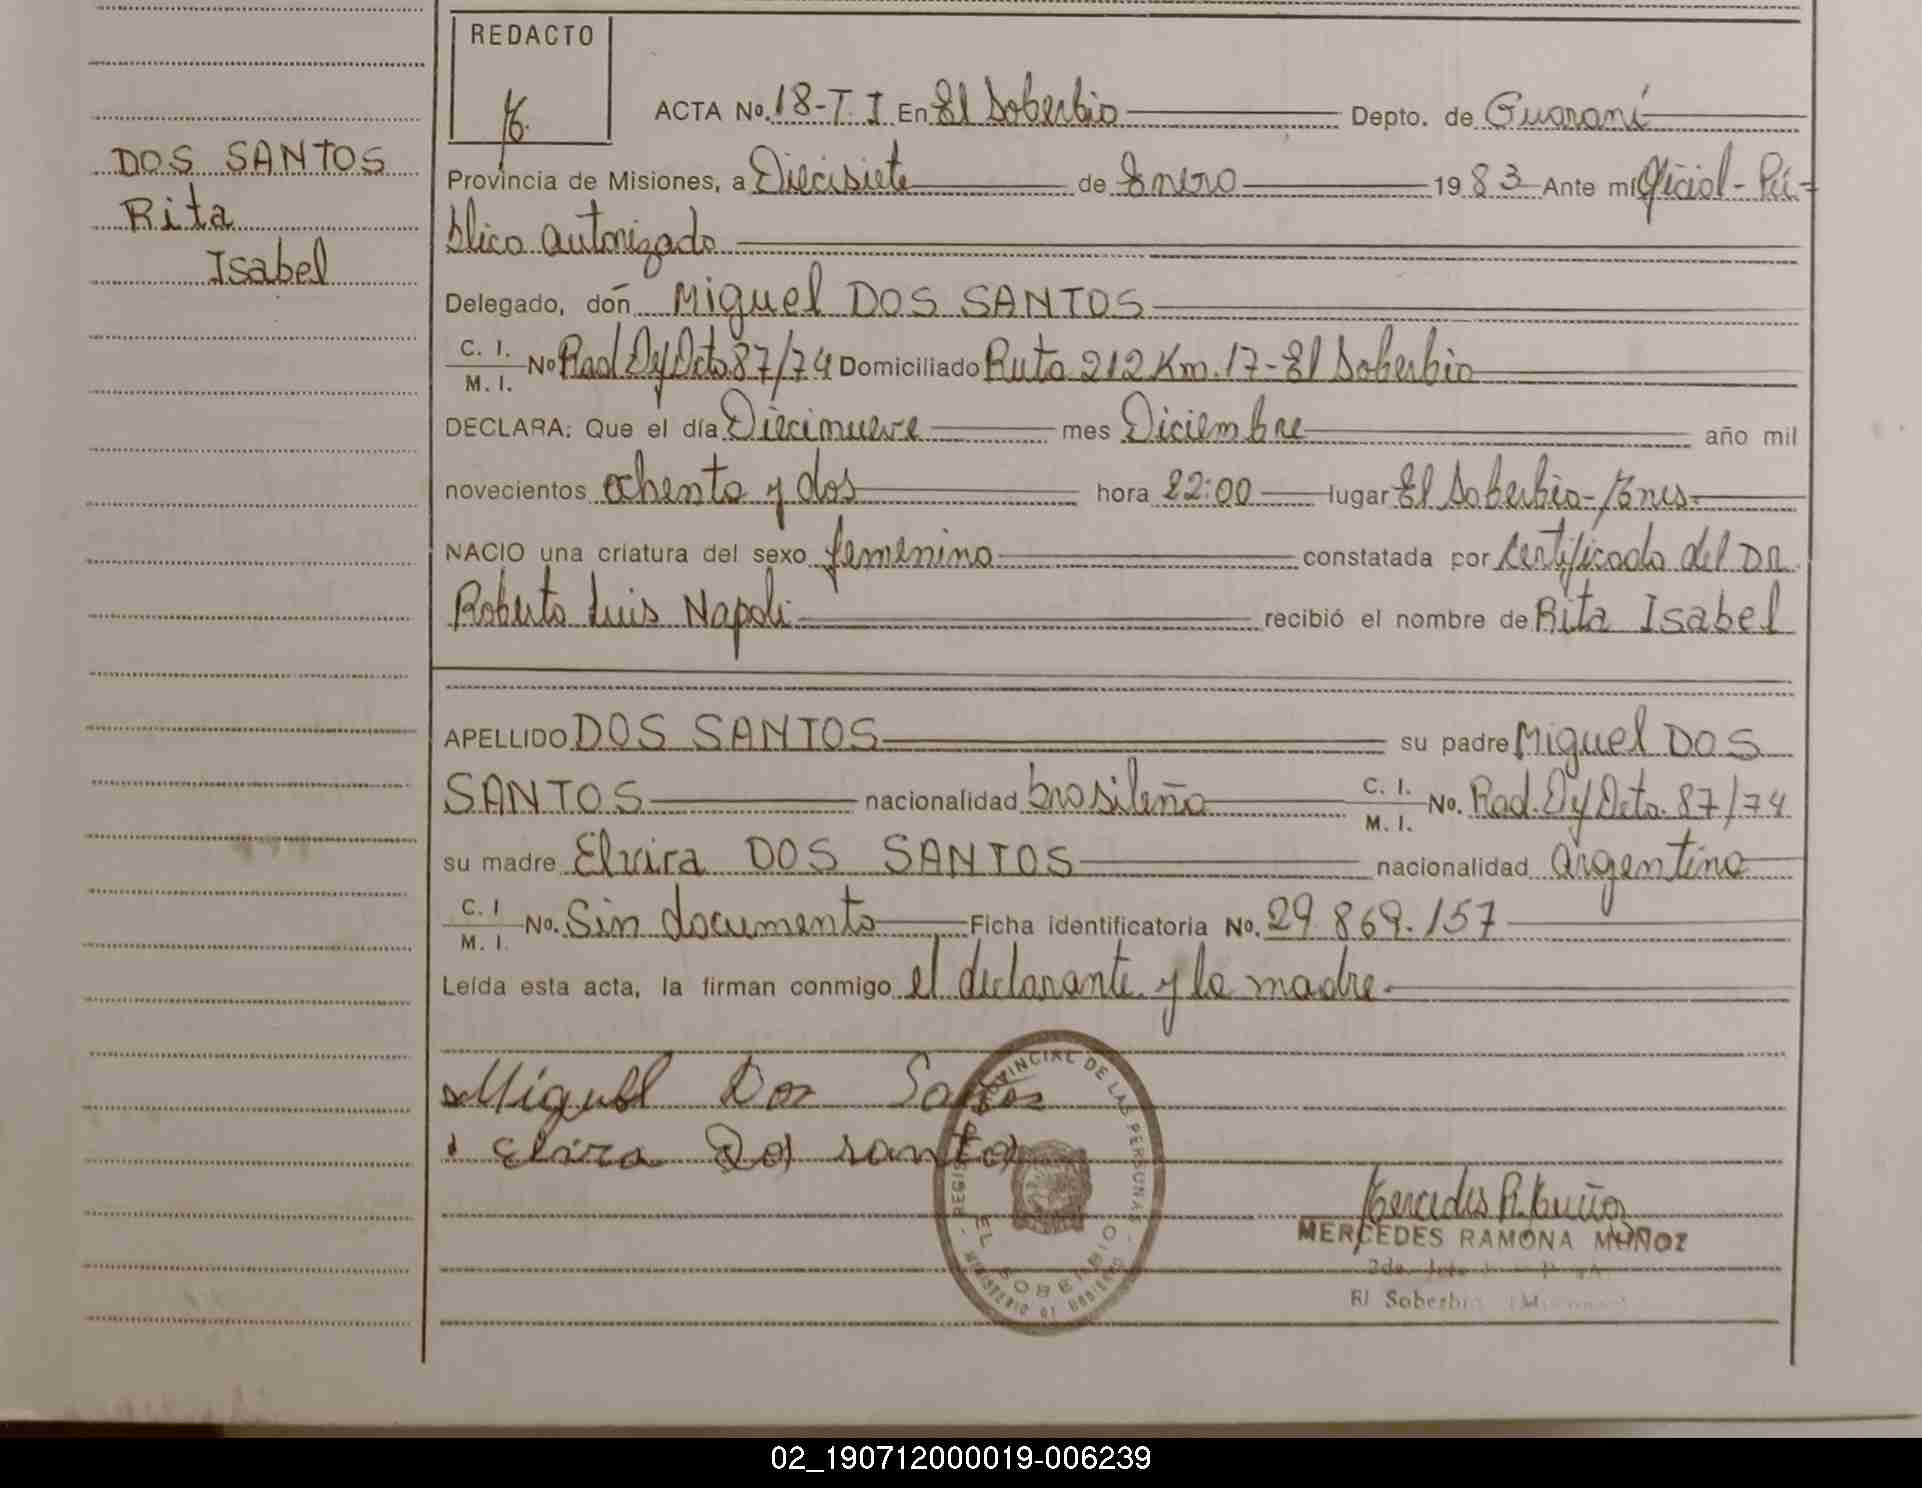 REDACTO
ACTA No. 18-T. I En El Soberbio Depto. de Guaraní
DOS SANTOS
Rita
Isabel
Provincia de Misiones, a Diecisiete de Enero 1983 Ante mi Oficial-Pú-
blico autorizado
Delegado, don Miguel DOS SANTOS
C. I.
M. I. No Rad. Dy Dcto 87/74 Domiciliado Ruta 212 Km. 17-El Soberbio
DECLARA: Que el día Diecinueve mes Diciembre año mil
novecientos ochenta y dos hora 22:00 lugar El Soberbio-
NACIO una criatura del sexo femenino constatada por Certificado del DR.
Roberto Luis Napoli recibió el nombre de Rita Isabel
APELLIDO DOS SANTOS su padre Miguel DOS
SANTOS nacionalidad brasileña C. I.
M. I. No. Rad. Dy Dcto. 87/74
su madre Elvira DOS SANTOS nacionalidad argentina
C. I
M. I. No. Sin documento Ficha identificatoria No. 29.869.157
Leída esta acta, la firman conmigo el declarante y la madre.
Miguel Dos Santos
Elvira Dos santos
REGISTRO PROVINCIAL DE LAS PERSONAS
EL SOBERBIO
MINISTERIO DE GOBIERNO
Mercedes R. Muñoz
MERCEDES RAMONA MUÑOZ
El Soberbio
02_190712000019-006239